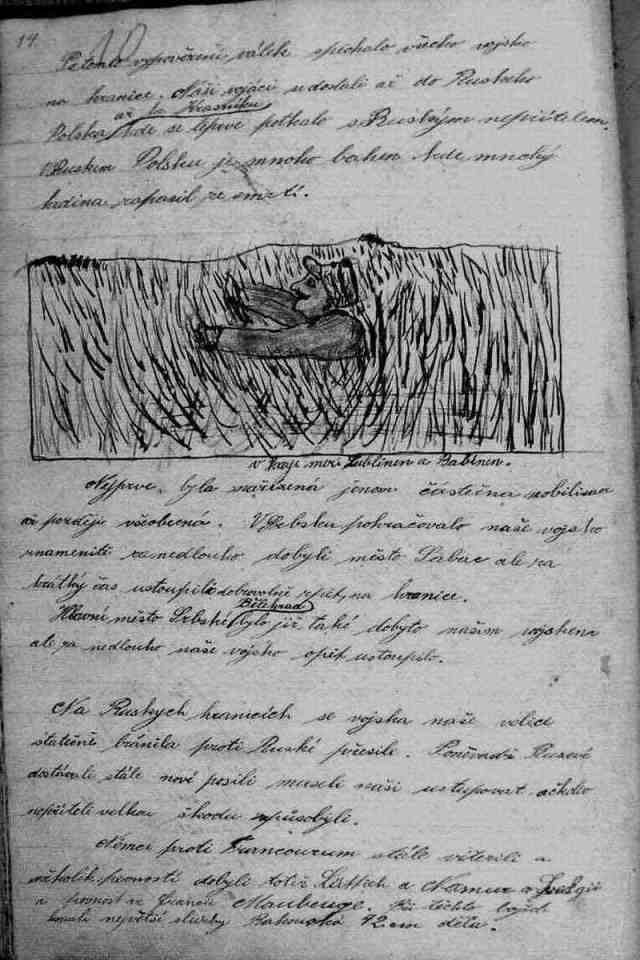 14
Po tomto vypovězení válek spěchalo všecko vojsko
na hranice. Naši vojáci se dostali až do Ruského
až ku Krasniku
Polska kde se teprve potkalo s Ruským nepřítelem.
V Ruském Polsku je mnoho bahen kde mnohý
hrdina zápasil ze smrtí.
v kraji mezi Lublinem a
Nejprve byla nařízená jenom částečná mobilisace
až později všeobecná. V Srbsku pokračovalo naše vojsko
znamenitě zanedlouho dobyli město Šabac ale za
krátký čas ustoupili dobrovolně zpět na hranice.
Bělehrad
Hlavní město Srbské bylo již také dobyto našim vojskem
ale za nedlouho naše vojsko opět ustoupilo.
Na Ruských hranicích se vojska naše velice
statečně bránila proti Ruské přesile. Poněvadž Rusové
dostávali stále nové posili museli naši ustupovat ačkoliv
nepříteli velkou škodu způsobyli.
Němci proti Francouzum stále vítězili a
několik pevností dobyli totiž Lüttich a Namur v Belgii
a pevnost ve Francii Maubeuge. Při těchto bojích
konali největší služby Rakouská 42 cm děla.